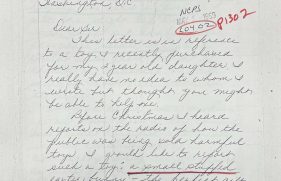 Washington, D.C.
NCPS
P1302
60402
Dear Sir:
This letter is in reference
to a toy I recently purchased
for my 2 year old daughter. I
really have no idea to whom I
wrote but thought you might
be able to help me.
Before Christmas I heard
reports on the radio of how the
public was being sold harmful
toys. I would like to report
such a toy: a small stuffed